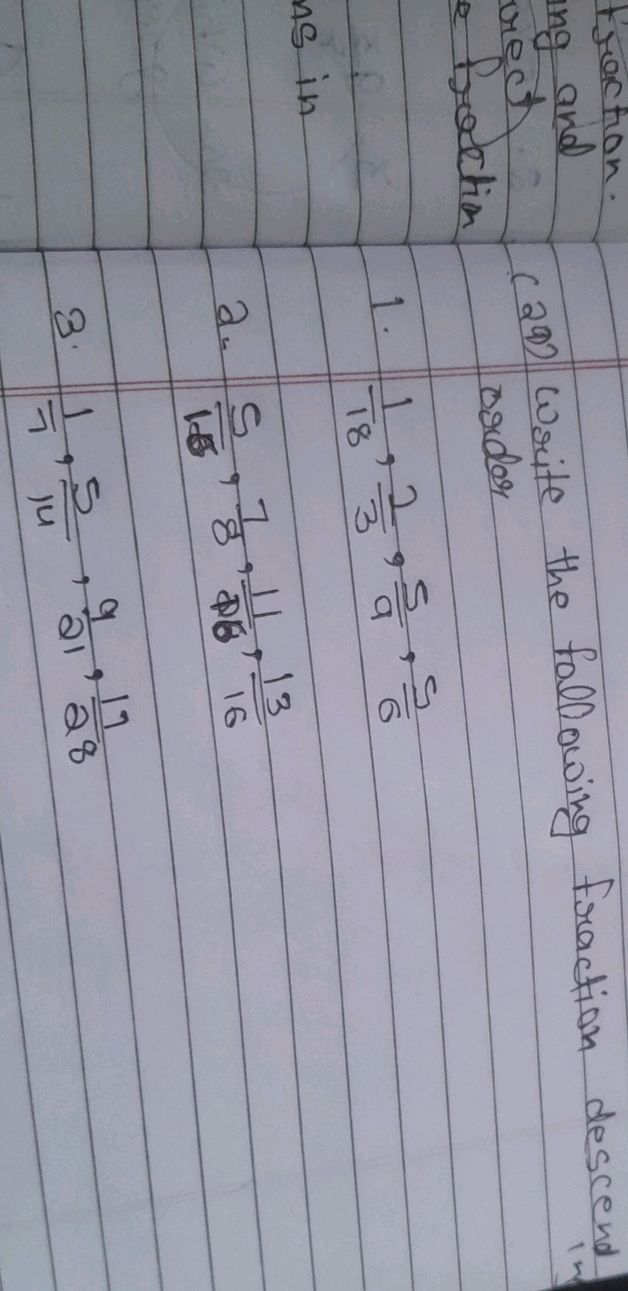 fraction.
ing and
rrect
e fraction
ns in
(29) write the following fraction descend in
order
1. 1/18, 2/3, 5/9, 5/6
2. 5/16, 7/8, 11/16, 13/16
3. 1/7, 5/14, 9/21, 17/28